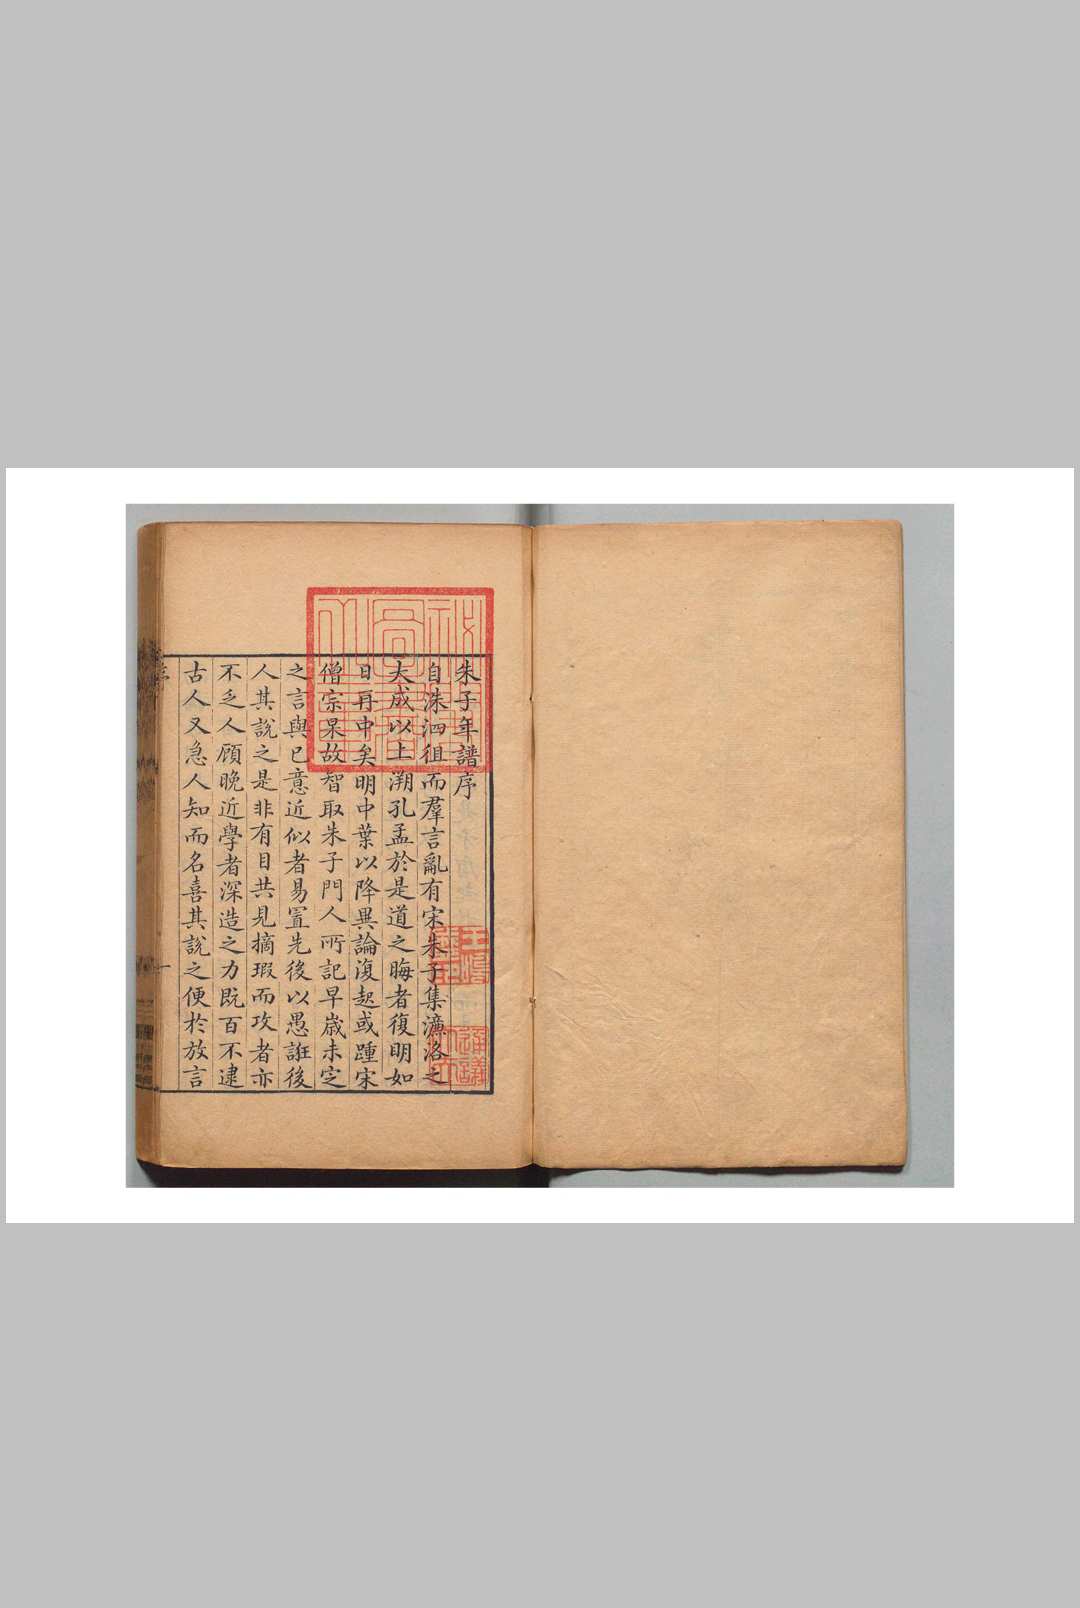 朱子年譜序
自洙泗徂而羣言亂有宋朱子集濂洛之
大成以上溯孔孟於是道之晦者復明如
日再中矣明中葉以降異論復起或踵宋
僧宗杲故智取朱子門人所記早歲未定
之言與已意近似者易置先後以愚誑後
人其說之是非有目共見摘瑕而攻者亦
不乏人顧晚近學者深造之力既百不逮
古人又急人知而名喜其說之便於放言
序
一